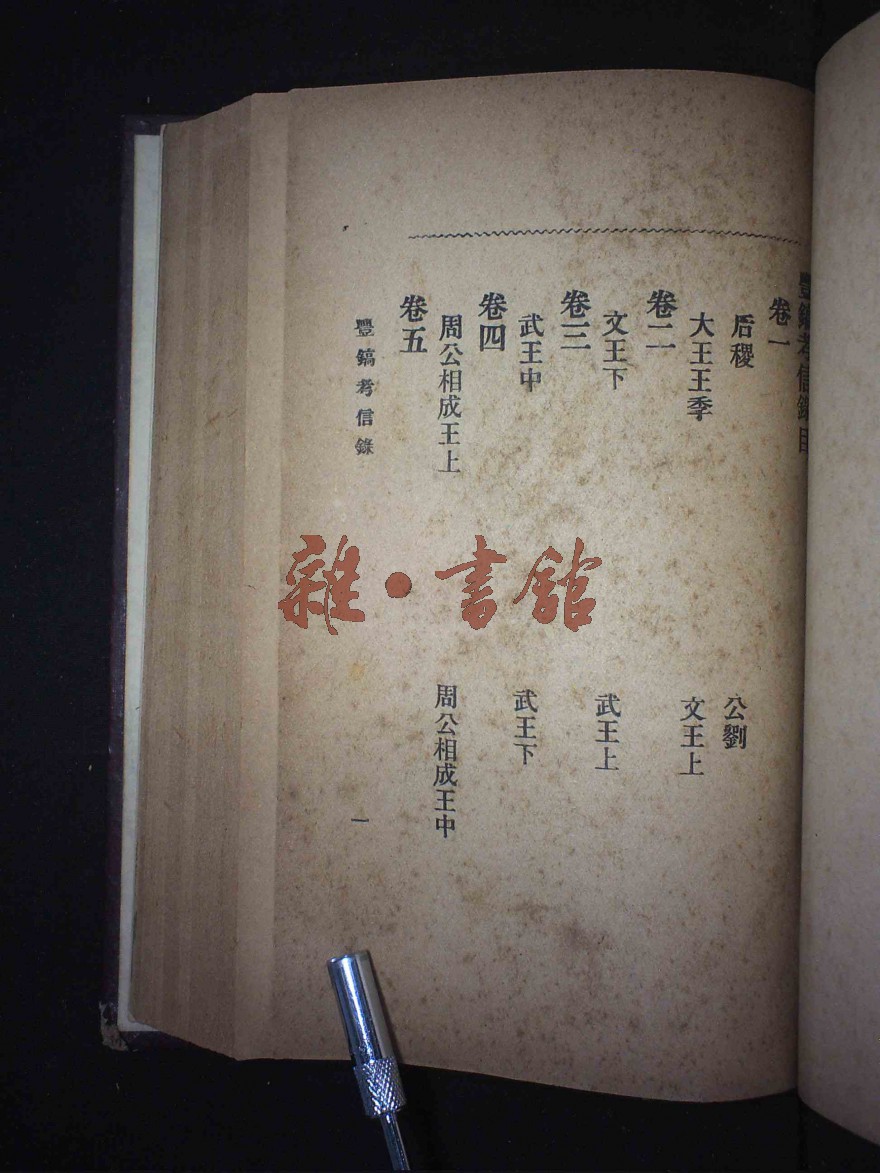 豐鎬考信錄目
卷一
后稷
公劉
大王王季
文王上
卷二
文王下
武王上
卷三
武王中
武王下
卷四
周公相成王上
周公相成王中
卷五
豐鎬考信錄
一
雜·書館